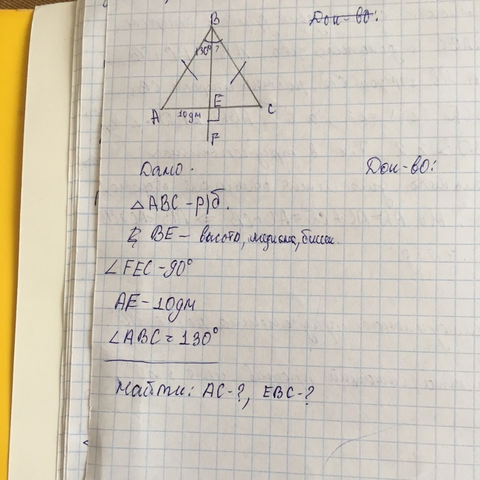 Док-во:
B
130° ?
A
E
C
10дм
F
Дано.
Док-во:
△ABC - р/б.
BE - высота, медиана, биссек.
∠FEC - 90°
AE - 10дм
∠ABC = 130°
Найти: AC-?, EBC-?